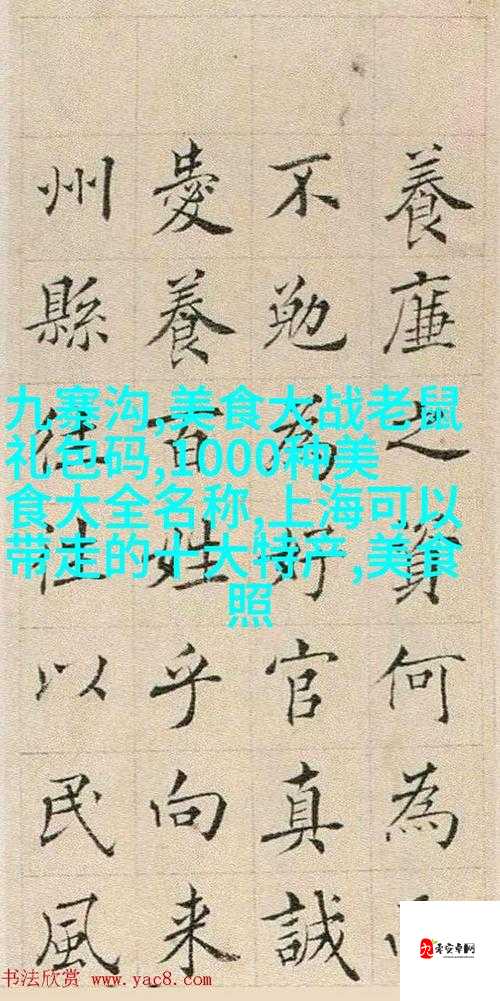 養廉之資何為
不勉為好官真誠
愛養百姓乎向来
州縣往往以民風
九寨沟,美食大战老鼠
礼包码,1000种美
食大全名称,上海可以
带走的十大特产,美食
照
书法欣赏 www.yac8.com
九零安卓网